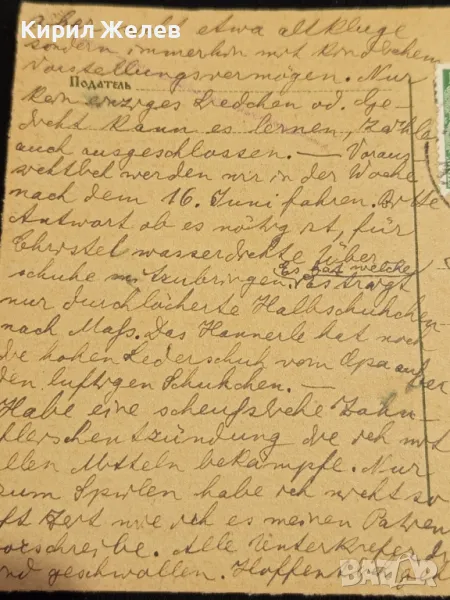 Кирил Желев
etwa altkluge
sondern immerhin mit kindlichem
Vorstellungsvermögen. Nur
Податель
kein einziges Liedchen od. Ge-
dicht kann es lernen, Zahlen
auch ausgeschlossen. — Voraus-
sichtlich werden wir in der Woche
nach dem 16. Juni fahren. Bitte
Antwort ob es nötig ist, für
Christel wasserdichte Über
schuhe mitzubringen. Es hat welche
trägt
nur durchlöcherte Halbschuhchen
nach Maß. Das Hannerle hat noch
die hohen Lederschuh vom Opa außer
den luftigen Schuhchen. —
Habe eine scheußliche Zahn-
entzündung die ich mit
allen Mitteln bekämpfe. Nur
zum Spülen habe ich nicht so
oft Zeit wie ich es meinen Patien
vorschreibe. Alle Unterkiefer
und geschwollen. Hoffen
bazar